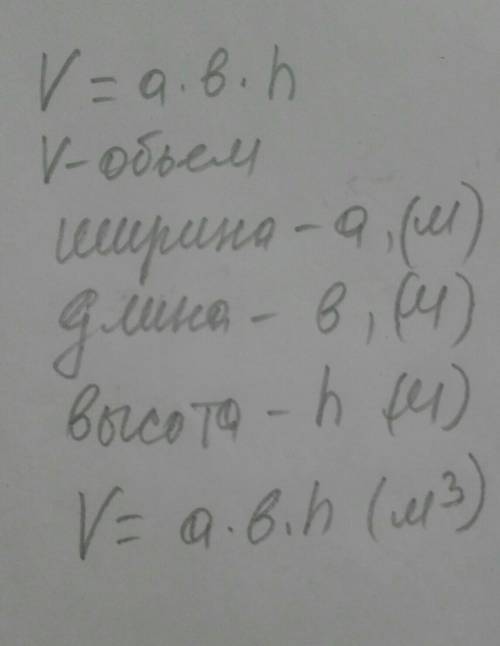 V = a · в · h
V - обьем
ширина - a, (м)
длина - в, (м)
высота - h (м)
V = a · в · h (м³)